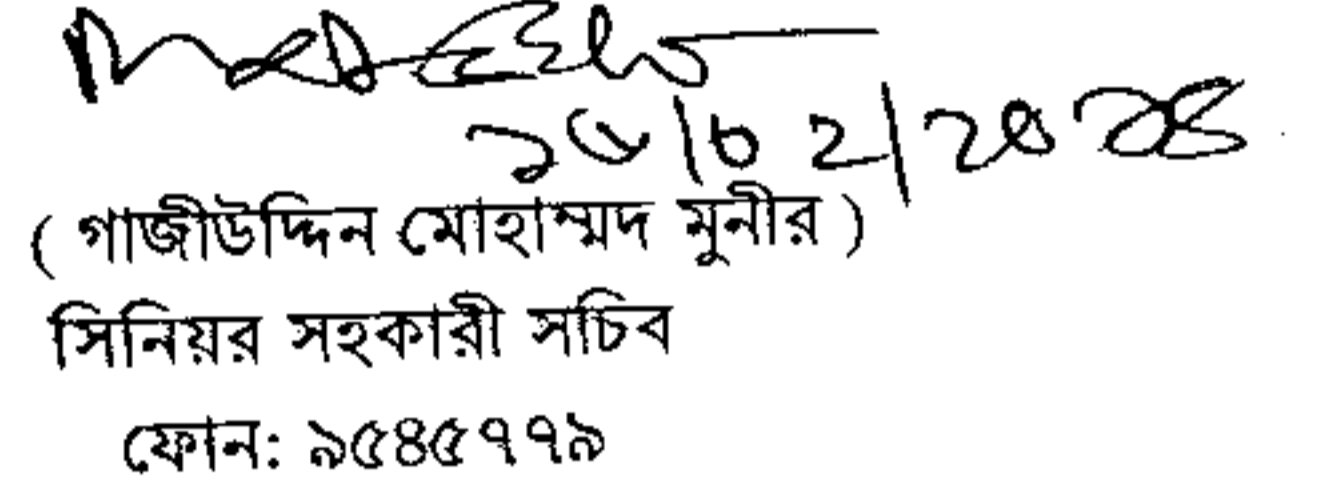 ( গাজীউদ্দিন মোহাম্মদ মুনীর )
সিনিয়র সহকারী সচিব
ফোন: ৯৫৪৫৭৭৯